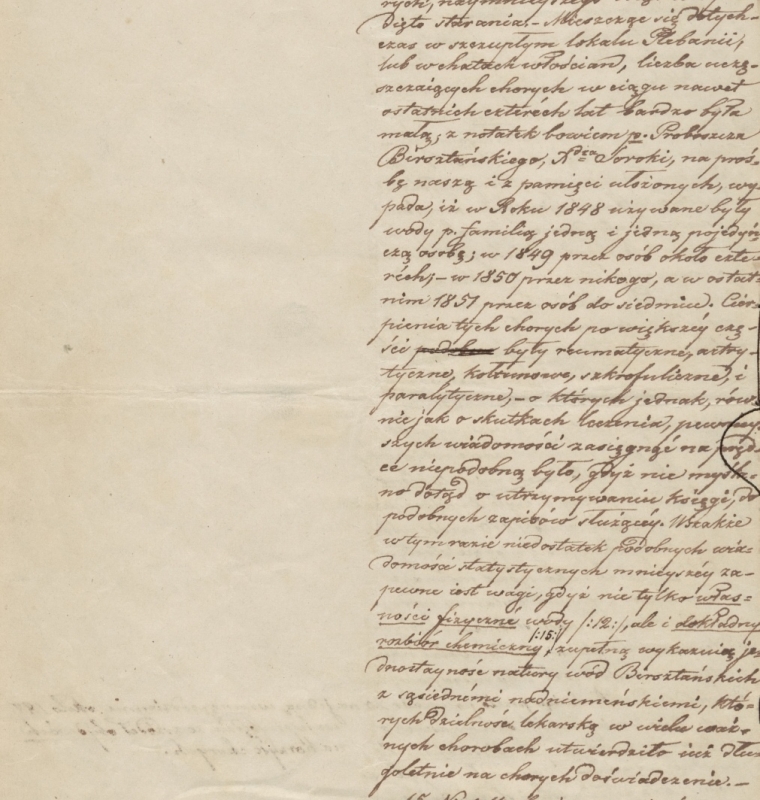 dięto starania. – Mieszcząc się dotych-
czas w szczupłym lokalu Plebanii,
lub w chatach włościan, liczba uczę-
szczaiących chorych w ciągu nawet
ostatnich czterech lat bardzo była
małą; z notatek bowiem p. Proboszcza
Birsztańskiego, Xdza Soroki, na proś-
bę naszą i z pamięci ułożonych, wy-
pada, iż w Roku 1848 używane były
wody p. familią jedną i jedną pojedyń
czą osobę; w 1849 przez osób około czte-
rech; – w 1850 przez nikogo, a w ostat-
nim 1851 przez osób do siedmiu. Cier-
pienia tych chorych po większéy czę-
ści były reumatyczne, artry-
tyczne, kołtunowe, szkrofuliczne, i
paralytyczne, – o których jednak, rów-
nie jak o skutkach leczenia, pewniey-
szych wiadomości zasięgnąć na pręd-
ce niepodobną było, gdyż nie myślo-
no dotąd o utrzymywaniu księgi, do
podobnych zapisów służącéy. Wszakże
w tym razie niedostatek podobnych wia-
domości statystycznych mnieyszéy za-
pewne iest wagi, gdyż nie tylko włas-
ności fizyczné wody /:12:/, ale i dokładny
rozbiór chemiczny /:15:/, zupełną wykazuią je-
dnostayność natury wód Birsztańskich
z sąsiedniémi nadniemeńskiemi, któ-
rych dzielność lekarską w wielu waż-
nych chorobach utwierdziło iuż dłu-
goletnie na chorych doświadczenie. –